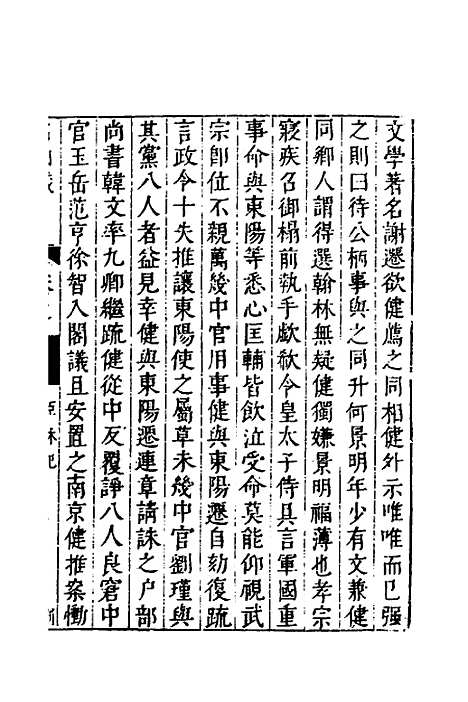 文學著名謝遷欲健薦之同相健外示唯唯而已强
之則曰待公柄事與之同升何景明年少有文兼健
同鄉人謂得選翰林無疑健獨嫌景明福薄也孝宗
寢疾召御榻前執手歔欷今皇太子侍具言軍國重
事命與東陽等悉心匡輔皆飲泣受命莫能仰視武
宗即位不親萬幾中官用事健與東陽遷自劾復疏
言政令十失推讓東陽使之屬草未幾中官劉瑾與
其黨八人者益見幸健與東陽遷連章請誅之户部
尚書韓文率九卿繼疏健從中反覆諍八人良窘中
官王岳范亨徐智入閣議且安置之南京健推案慟